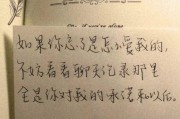 如果你忘了是怎么爱我的，
不妨看看聊天记录那里
全是你对我的承诺和以后。